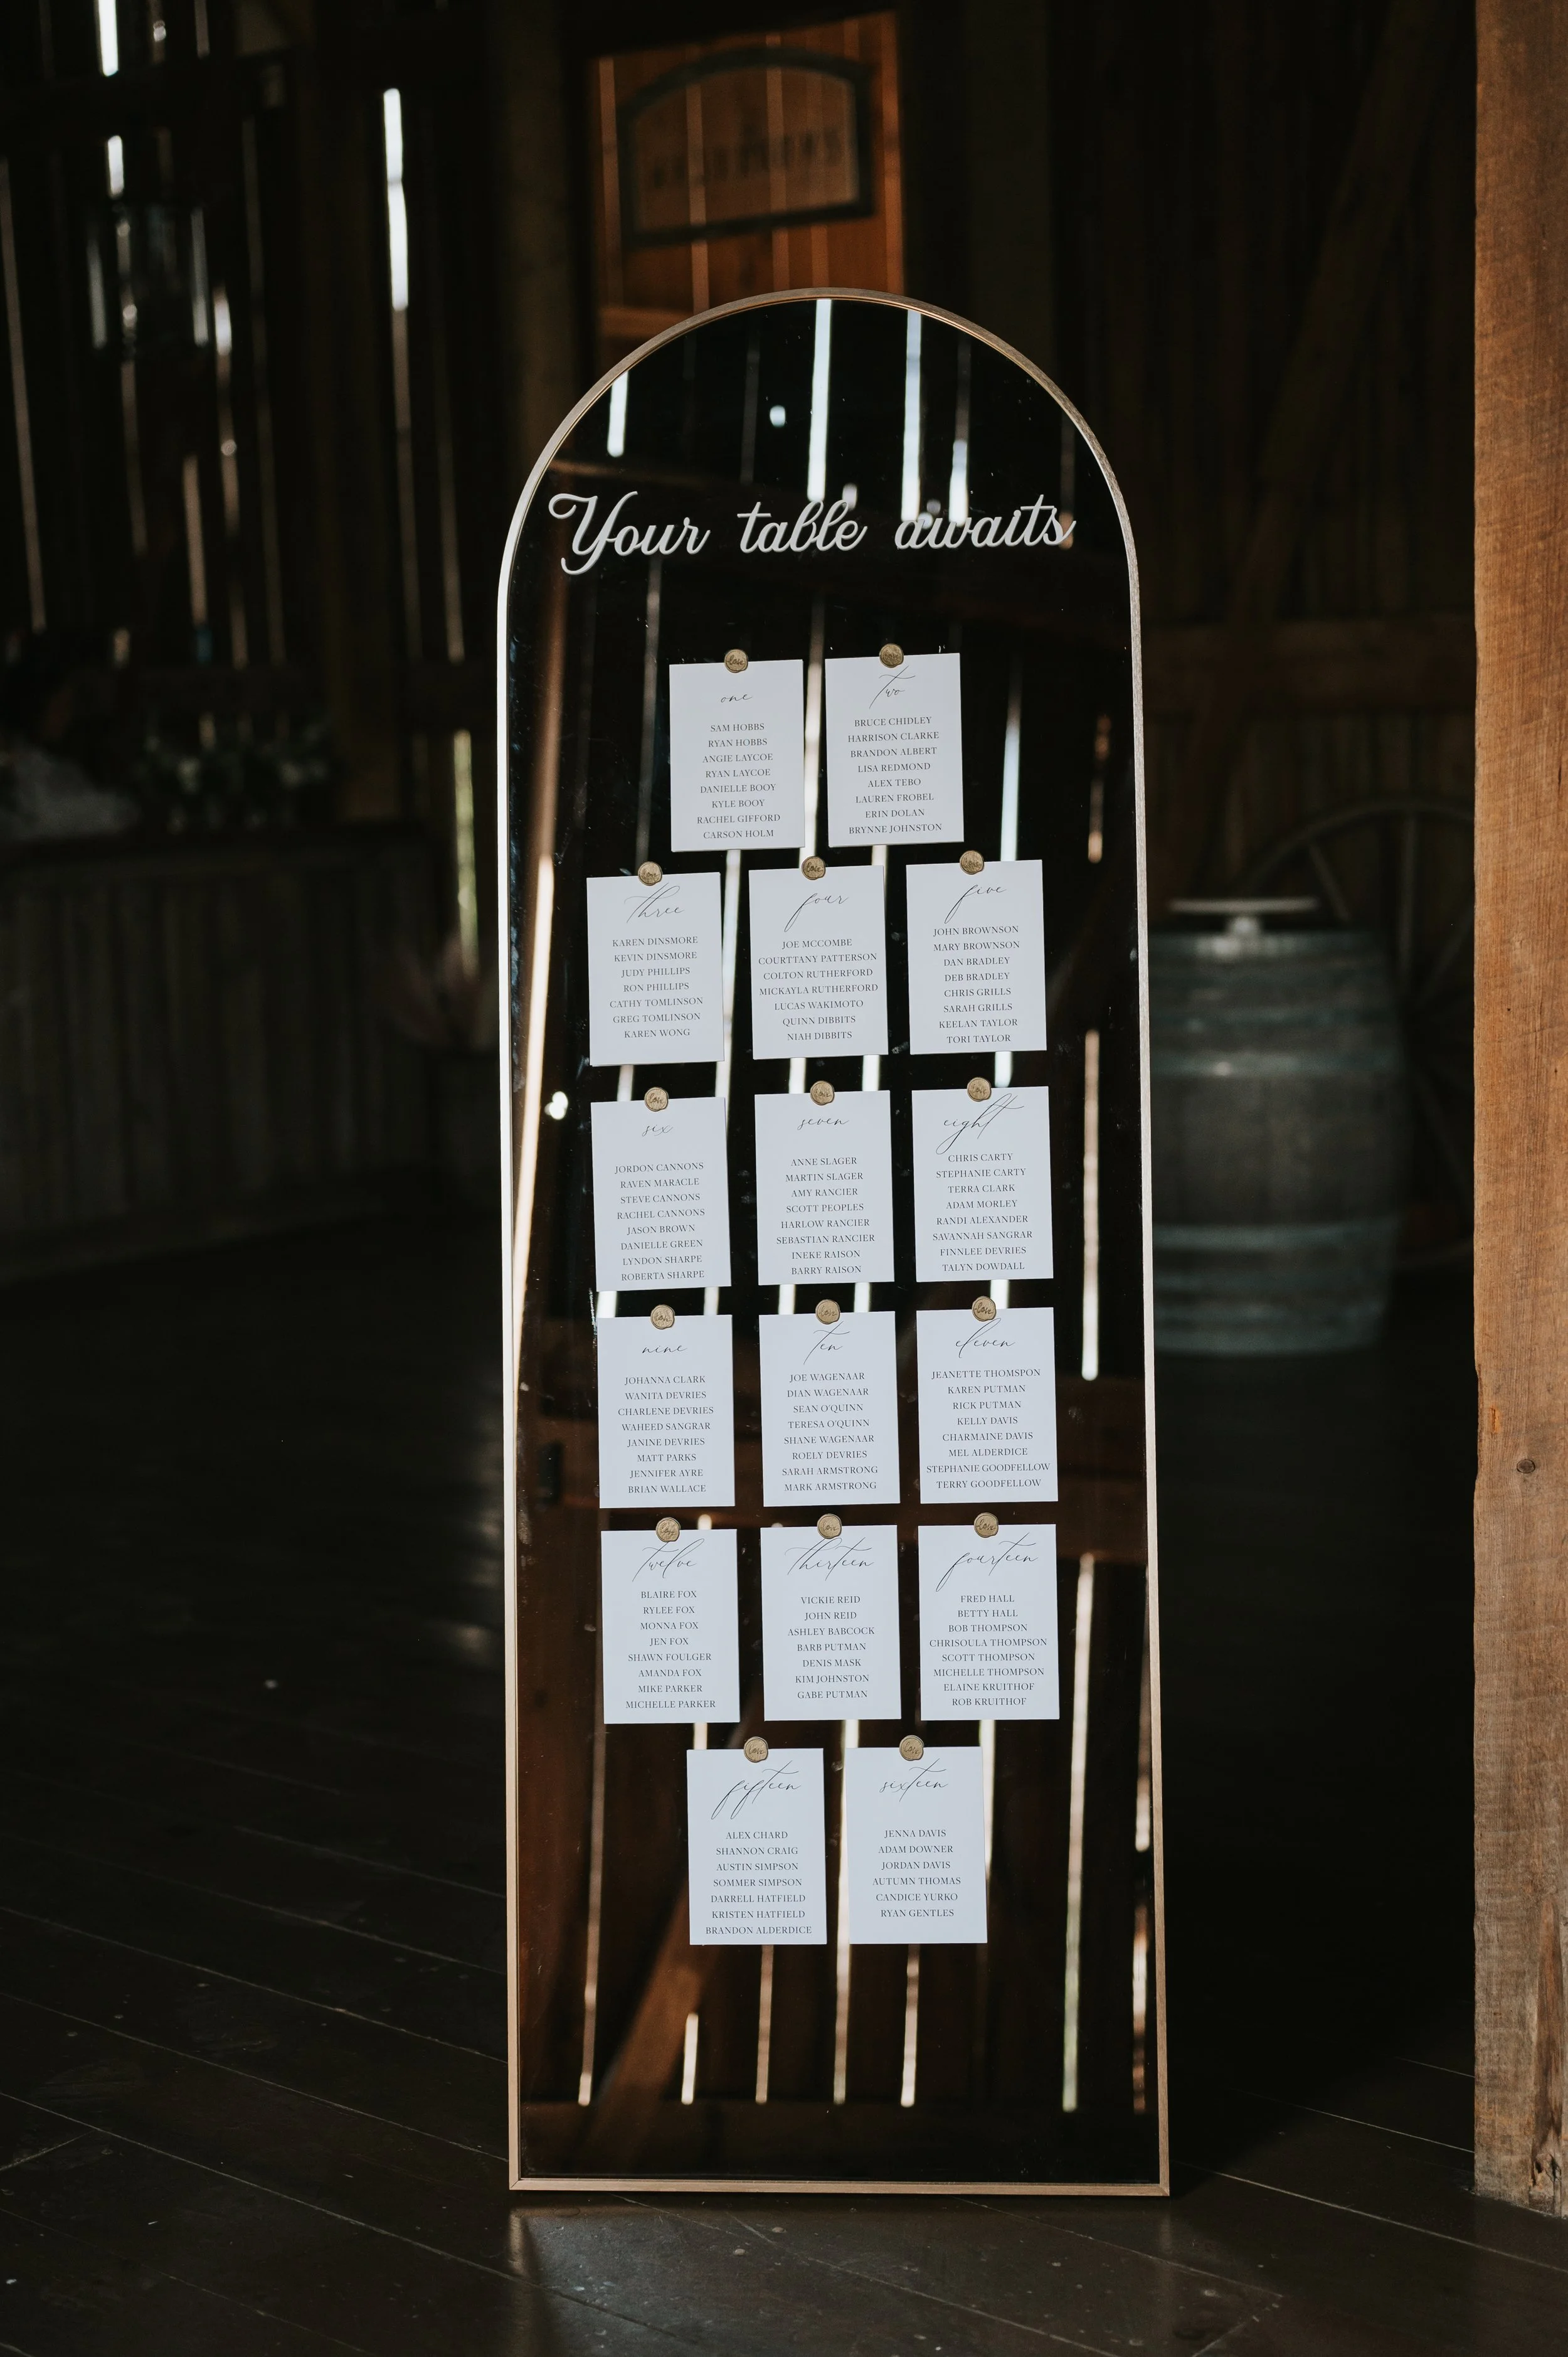 Your table awaits
one
SAM HOBBS
RYAN HOBBS
ANGIE LAYCOE
RYAN LAYCOE
DANIELLE BOOY
KYLE BOOY
RACHEL GIFFORD
CARSON HOLM
two
BRUCE CHIDLEY
HARRISON CLARKE
BRANDON ALBERT
LISA REDMOND
ALEX TEBO
LAUREN FROBEL
ERIN DOLAN
BRYNNE JOHNSTON
three
KAREN DINSMORE
KEVIN DINSMORE
JUDY PHILLIPS
RON PHILLIPS
CATHY TOMLINSON
GREG TOMLINSON
KAREN WONG
four
JOE MCCOMBE
COURTTANY PATTERSON
COLTON RUTHERFORD
MICKAYLA RUTHERFORD
LUCAS WAKIMOTO
QUINN DIBBITS
NIAH DIBBITS
five
JOHN BROWNSON
MARY BROWNSON
DAN BRADLEY
DEB BRADLEY
CHRIS GRILLS
SARAH GRILLS
KEELAN TAYLOR
TORI TAYLOR
six
JORDON CANNONS
RAVEN MARACLE
STEVE CANNONS
RACHEL CANNONS
JASON BROWN
DANIELLE GREEN
LYNDON SHARPE
ROBERTA SHARPE
seven
ANNE SLAGER
MARTIN SLAGER
AMY RANCIER
SCOTT PEOPLES
HARLOW RANCIER
SEBASTIAN RANCIER
INEKE RAISON
BARRY RAISON
eight
CHRIS CARTY
STEPHANIE CARTY
TERRA CLARK
ADAM MORLEY
RANDI ALEXANDER
SAVANNAH SANGRAR
FINNLEE DEVRIES
TALYN DOWDALL
nine
JOHANNA CLARK
WANITA DEVRIES
CHARLENE DEVRIES
WAHEED SANGRAR
JANINE DEVRIES
MATT PARKS
JENNIFER AYRE
BRIAN WALLACE
ten
JOE WAGENAAR
DIAN WAGENAAR
SEAN O'QUINN
TERESA O'QUINN
SHANE WAGENAAR
ROELY DEVRIES
SARAH ARMSTRONG
MARK ARMSTRONG
eleven
JEANETTE THOMSPON
KAREN PUTMAN
RICK PUTMAN
KELLY DAVIS
CHARMAINE DAVIS
MEL ALDERDICE
STEPHANIE GOODFELLOW
TERRY GOODFELLOW
twelve
BLAIRE FOX
RYLEE FOX
MONNA FOX
JEN FOX
SHAWN FOULGER
AMANDA FOX
MIKE PARKER
MICHELLE PARKER
thirteen
VICKIE REID
JOHN REID
ASHLEY BABCOCK
BARB PUTMAN
DENIS MASK
KIM JOHNSTON
GABE PUTMAN
fourteen
FRED HALL
BETTY HALL
BOB THOMPSON
CHRISOULA THOMPSON
SCOTT THOMPSON
MICHELLE THOMPSON
ELAINE KRUITHOF
ROB KRUITHOF
fifteen
ALEX CHARD
SHANNON CRAIG
AUSTIN SIMPSON
SOMMER SIMPSON
DARRELL HATFIELD
KRISTEN HATFIELD
BRANDON ALDERDICE
sixteen
JENNA DAVIS
ADAM DOWNER
JORDAN DAVIS
AUTUMN THOMAS
CANDICE YURKO
RYAN GENTLES